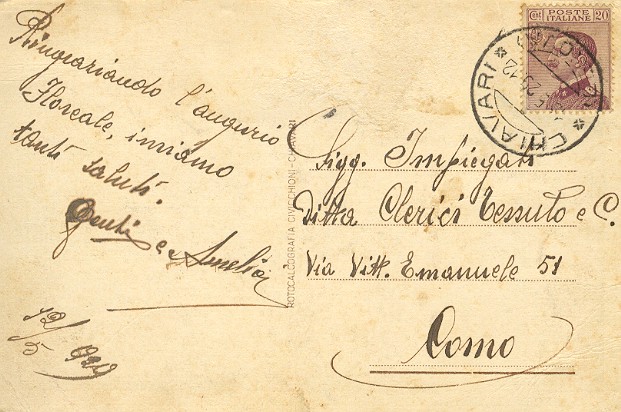 Ringraziando l'augurio
Floreale, inviamo
tanti saluti.
e Amelia
12/5
Sigg. Impiegati
Ditta Clerici Tessuto e C.
Via Vitt. Emanuele 51
Como
POSTE ITALIANE
Cent 20
CHIAVARI
ROTOCALCOGRAFIA CIVICCHIONI-CHIAVARI